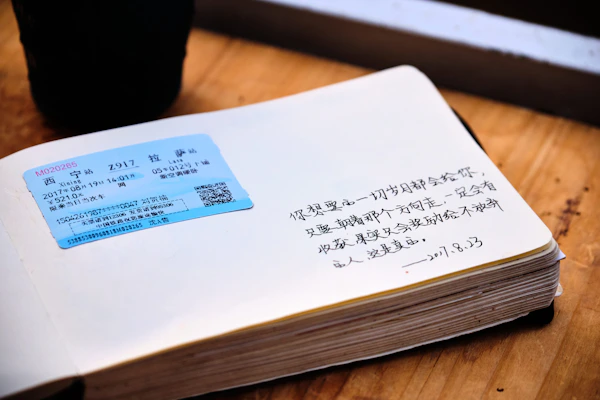 M020265
西宁站 Z917 拉萨站
Xining Lasa
2017年08月19日 14:01开 05车012号下铺
￥521.0元 网 新空调硬卧
限乘当日当次车
中国铁路祝您旅途愉快
你想要的一切岁月都会给你，
只要朝着那个方向走．一定会有
收获，果实只会奖励给不放弃
的人，这是真的。
——2017.8.23